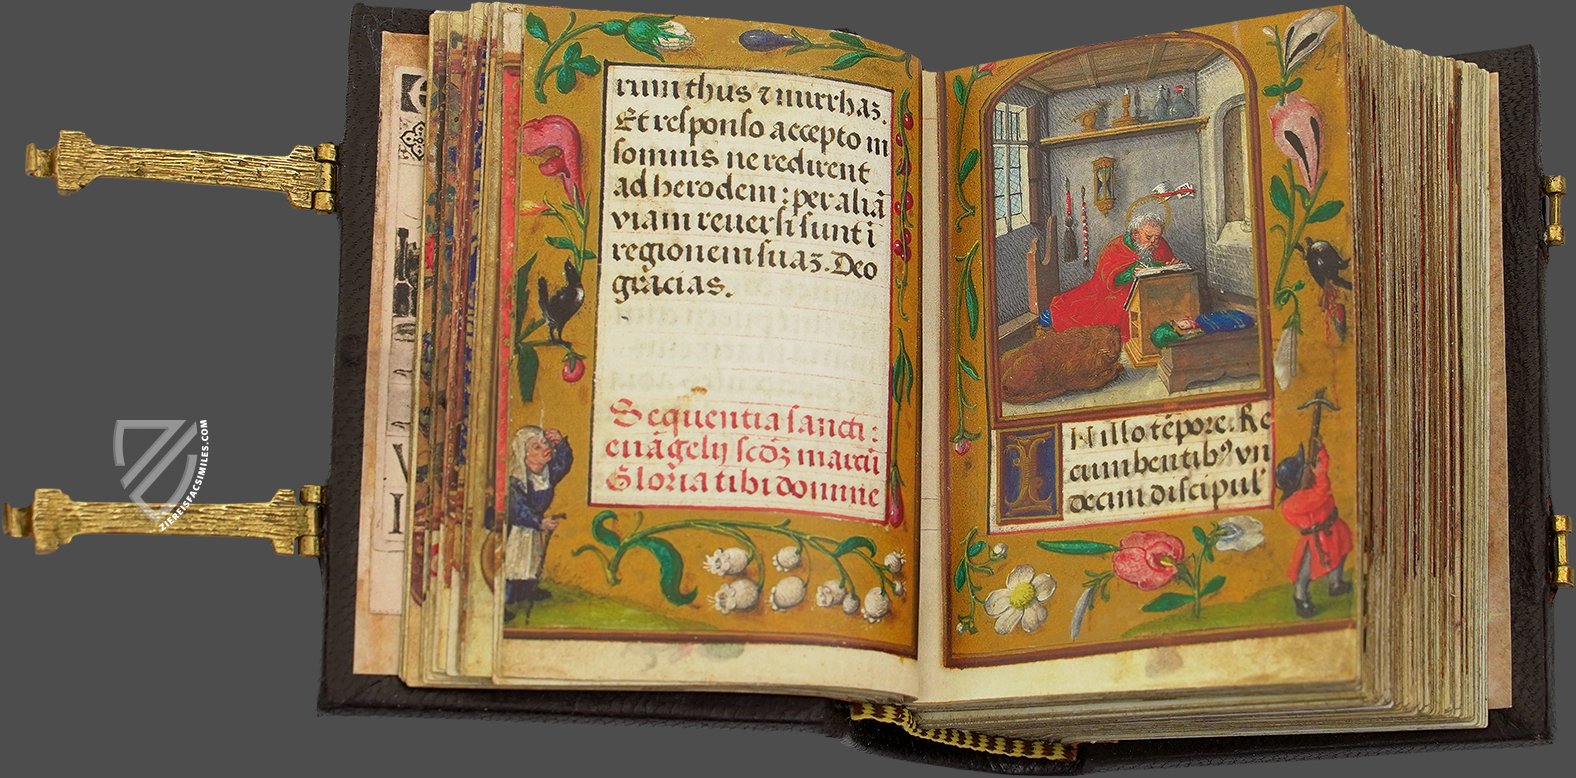 rum thus ⁊ mirrhaʒ.
Et responso accepto in
somnis ne redirent
ad herodem: per aliā
viam reuersi sunt ī
regionem suaʒ. Deo
gracias.
Sequentia sancti:
euāgelij scd̄ʒ marcū
Gloria tibi domine
IN illo tēpore. Re
cumbentibꝰ vn
decim discipul'
ZIEREISFACSIMILES.COM